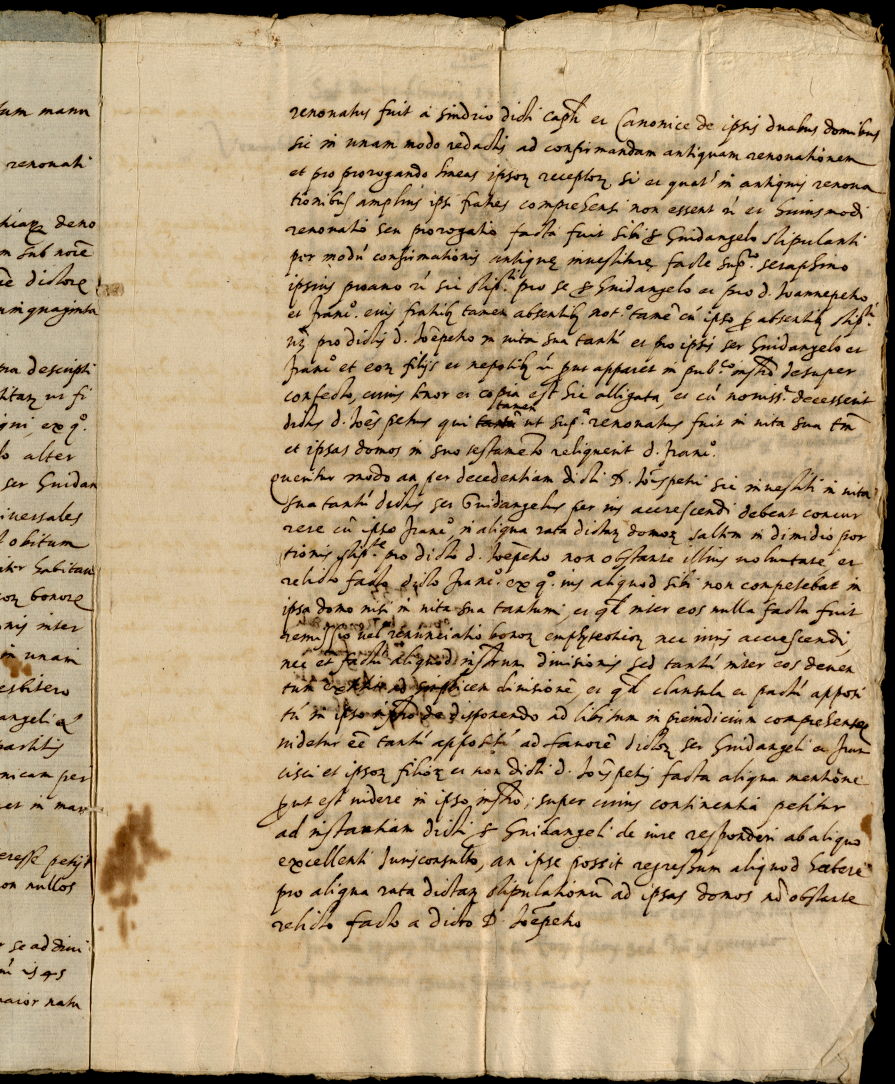 tum manu
renonati
hiaꝝ deno
m sub noiē
dictore
uinquaginta
descripti
titaꝝ ut si
gni, ex qº.
lo alter
ser Guidan
iuersales
obitum
inter habitan
bonorꝝ
nis inter
in unam
esbitero
angeli et
partitis
nicam per
et in mar
eresse petijt
on nullos
r se ad diui
1545
maior natu
renonatus fuit a sindrio dicti capli et Canonice de ipsis duabus domibus
sic in unam modo redactis ad confirmandam antiquam renonationem
et pro prorogando lineas ipsoꝝ receptoꝝ si et quat.' in antiquis renona
tionibus amplius ipsi fratres comprehensi non essent ù et huiusmodi
renonatio seu prorogatio facta fuit sibi S. Guidangelo stipulanti
per modū confirmationis antique inuestiture facte supº. seraphino
ipsius proauo ù sic stipti. pro se S. Guidangelo et pro d. Ioannepetro
et Franº. eius fratribꝫ tamen absentibꝫ not.º tamē cū ipso ꝑ absentibꝫ stipti.
uꝫ pro dictis d. Ioēpetro in uita sua tantū et pro ipsis ser Guidangelo et
Franº et eoꝝ filijs et nepotibꝫ ù put apparet in pub.co instrō desuper
confecto, cuius tenor et copia est sic alligata, et cū nouiss.e decesserit
dictus d. Ioēs petrus qui tamen ut sup.a renonatus fuit in uita sua tm̄
et ipsas domos in suo testamēto reliquerit d. Franº.
Queritur modo an per decedentiam dicti D. Ioīspetri sic inuestiti in uita
sua tantū dictus ser Guidangelus per ius accrescendi debeat concur
rere cū ipso Franº. in aliqua rata dictaꝝ domoꝝ saltem in dimidio por
tionis stip.te pro dicto d. Ioēpetro non obstante illius uoluntate, et
relicto facto dicto Franº. ex qº. ius aliquod sibi non competebat in
ipsa domo nisi in uita sua tantum, et qd inter eos nulla facta fuit
remissio uel renunciatio bonoꝝ emphyteoticoꝝ nec iuris accrescendi,
nec et factū aliquod instrum diuisionis sed tantū inter eos deuen
tum ad simplicem diuisionē, et qd clausula et pactū apposi
tū in ipso instrō de disponendo ad libitum in preiudicium comprehensoꝝ
uidetur eē tantū appositū ad fauorē dictoꝝ ser Guidangeli et Fran
cisci et ipsoꝝ filioꝝ et non dicti d. Ioīspetri facta aliqua mentione
ꝓut est uidere in ipso instrō; super cuius continentia petitur
ad instantiam dicti S. Guidangeli de iure responderi ab aliquo
excellenti Iurisconsulto, an ipse possit regressum aliquod habere
pro aliqua rata dictaꝝ stipulationū ad ipsas domos nō obstante
relicto facto a dicto D. Ioēpetro